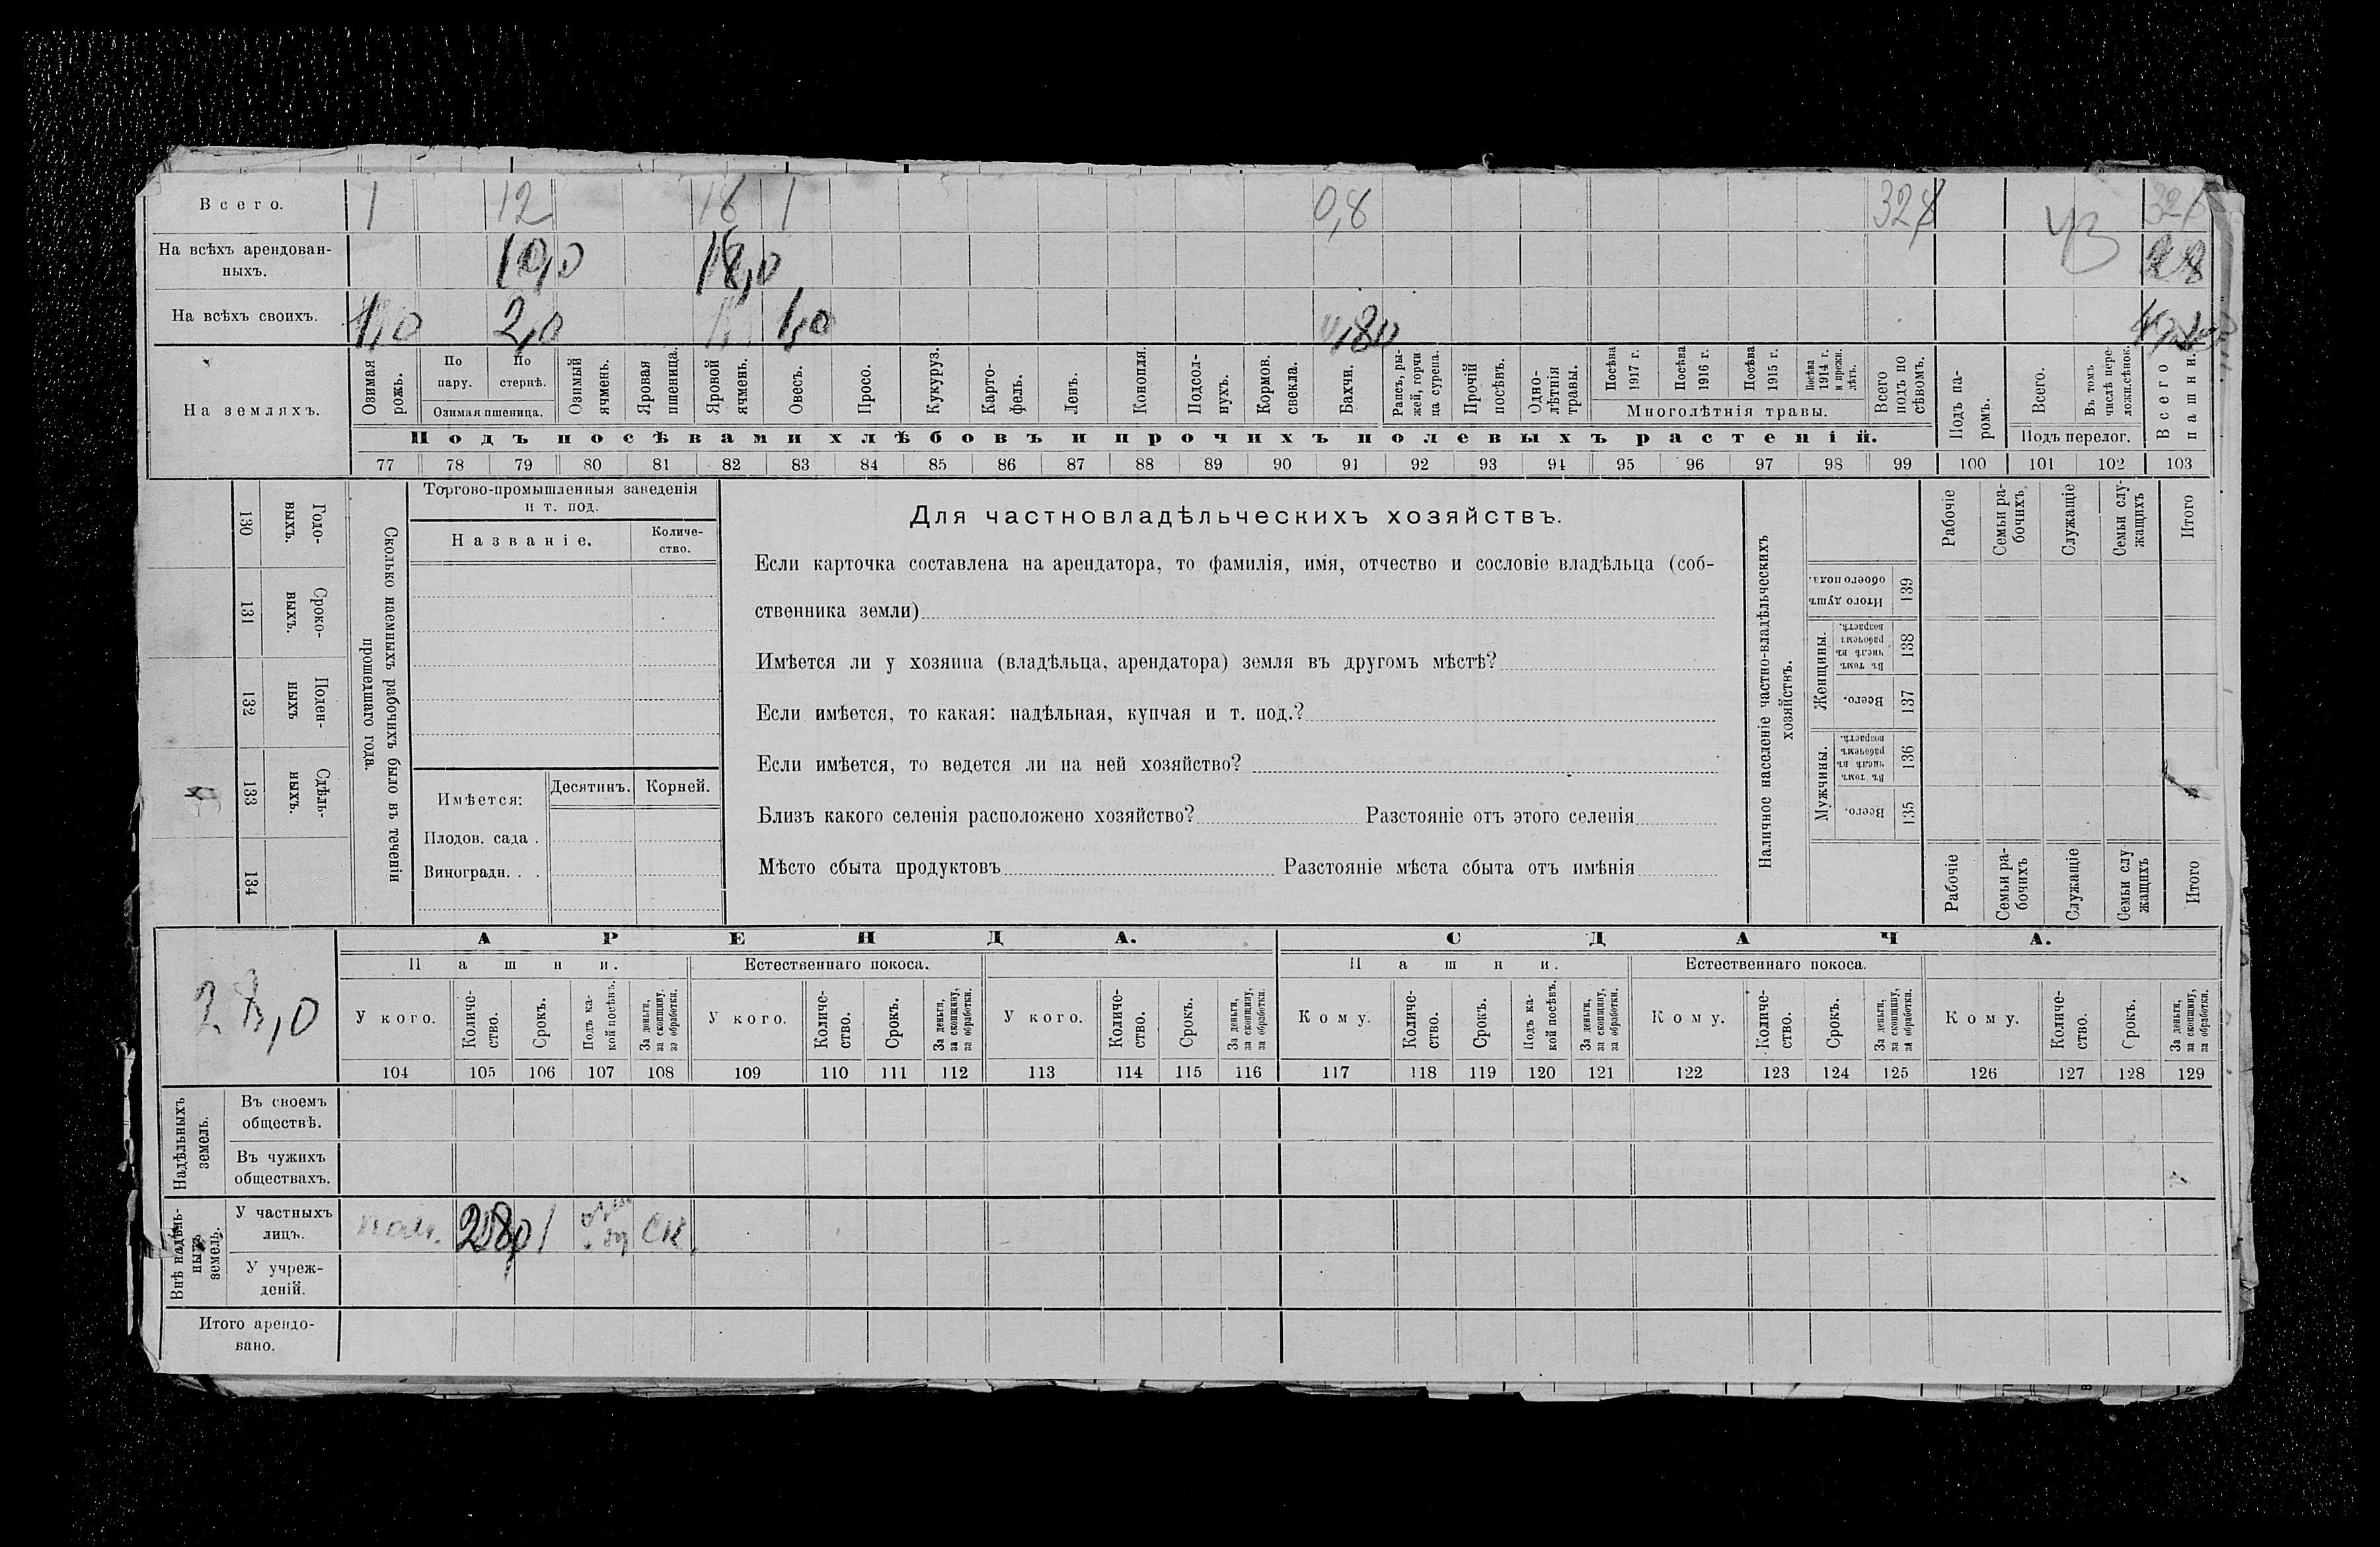 Всего. 1 12 18 1 0,8 328
На всѣхъ арендован-
ныхъ. 10,0 18,0 28
На всѣхъ своихъ. 1,0 2,0 1,0 80
На земляхъ.
Озимая рожь.
По пару.
По стернѣ.
Озимая пшеница.
Озимый ячмень.
Яровая пшеница.
Яровой ячмень.
Овесъ.
Просо.
Кукуруз.
Карто-
фель.
Ленъ.
Конопля.
Подсол-
нухъ.
Кормов. свекла.
Бахчи.
Рапсъ, ры-
жей, горчи
ца сурепа.
Прочій посѣвъ.
Одно-
лѣтнія
травы.
Посѣва 1917 г.
Посѣва 1916 г.
Посѣва 1915 г.
Посѣва 1914 г. и прежн. лѣтъ.
Многолѣтнія травы.
Всего подъ по
сѣвомъ.
Подъ посѣвами хлѣбовъ и прочихъ полевыхъ растеній.
Подъ па-
ромъ.
Всего.
Въ томъ числѣ пере-
ложн.сѣнок.
Подъ перелог.
Всего пашни.
77 78 79 80 81 82 83 84 85 86 87 88 89 90 91 92 93 94 95 96 97 98 99 100 101 102 103
130 Годо-
выхъ.
131 Сроко-
выхъ.
132 Поден-
ныхъ
133 Сдѣль-
ныхъ.
134
Сколько наемныхъ рабочихъ было въ теченіи
прошедшаго года.
Торгово-промышленныя заведенія
и т. под.
Названіе.
Количе-
ство.
Имѣется: Десятинъ. Корней.
Плодов. сада .
Виноградн. . .
Для частновладѣльческихъ хозяйствъ.
Если карточка составлена на арендатора, то фамилія, имя, отчество и сословіе владѣльца (соб-
ственника земли)
Имѣется ли у хозяина (владѣльца, арендатора) земля въ другомъ мѣстѣ?
Если имѣется, то какая: надѣльная, купчая и т. под.?
Если имѣется, то ведется ли на ней хозяйство?
Близъ какого селенія расположено хозяйство? Разстояніе отъ этого селенія
Мѣсто сбыта продуктовъ Разстояніе мѣста сбыта отъ имѣнія
Наличное населеніе частно-владѣльческихъ
хозяйствъ.
Рабочіе
Семьи ра-
бочихъ
Служащіе
Семьи слу-
жащихъ
Итого
Итого душъ обоего пола. 139
Женщины.
Въ томъ числѣ въ рабочемъ возрастѣ. 138
Всего. 137
Мужчины.
Въ томъ числѣ въ рабочемъ возрастѣ. 136
Всего. 135
Рабочіе
Семьи ра-
бочихъ
Служащіе
Семьи слу
жащихъ
Итого
АРЕНДА. СДАЧА.
Пашни. Естественнаго покоса. Пашни. Естественнаго покоса.
У кого. Количе-
ство. Срокъ. Подъ ка-
кой посѣвъ. За деньги, за скопщину, за обработки.
У кого. Количе-
ство. Срокъ. За деньги, за скопщину, за обработки.
У кого. Количе-
ство. Срокъ. За деньги, за скопщину, за обработки.
Кому. Количе-
ство. Срокъ. Подъ ка-
кой посѣвъ. За деньги, за скопщину, за обработки.
Кому. Количе-
ство. Срокъ. За деньги, за скопщину, за обработки.
Кому. Количе-
ство. Срокъ. За деньги, за скопщину, за обработки.
104 105 106 107 108 109 110 111 112 113 114 115 116 117 118 119 120 121 122 123 124 125 126 127 128 129
Надѣльныхъ земель.
Въ своемъ
обществѣ.
Въ чужихъ
обществахъ.
Внѣ надѣль-
ныхъ
земель.
У частныхъ
лицъ. 280 1 ск.
У учреж-
деній.
Итого арендо-
вано.